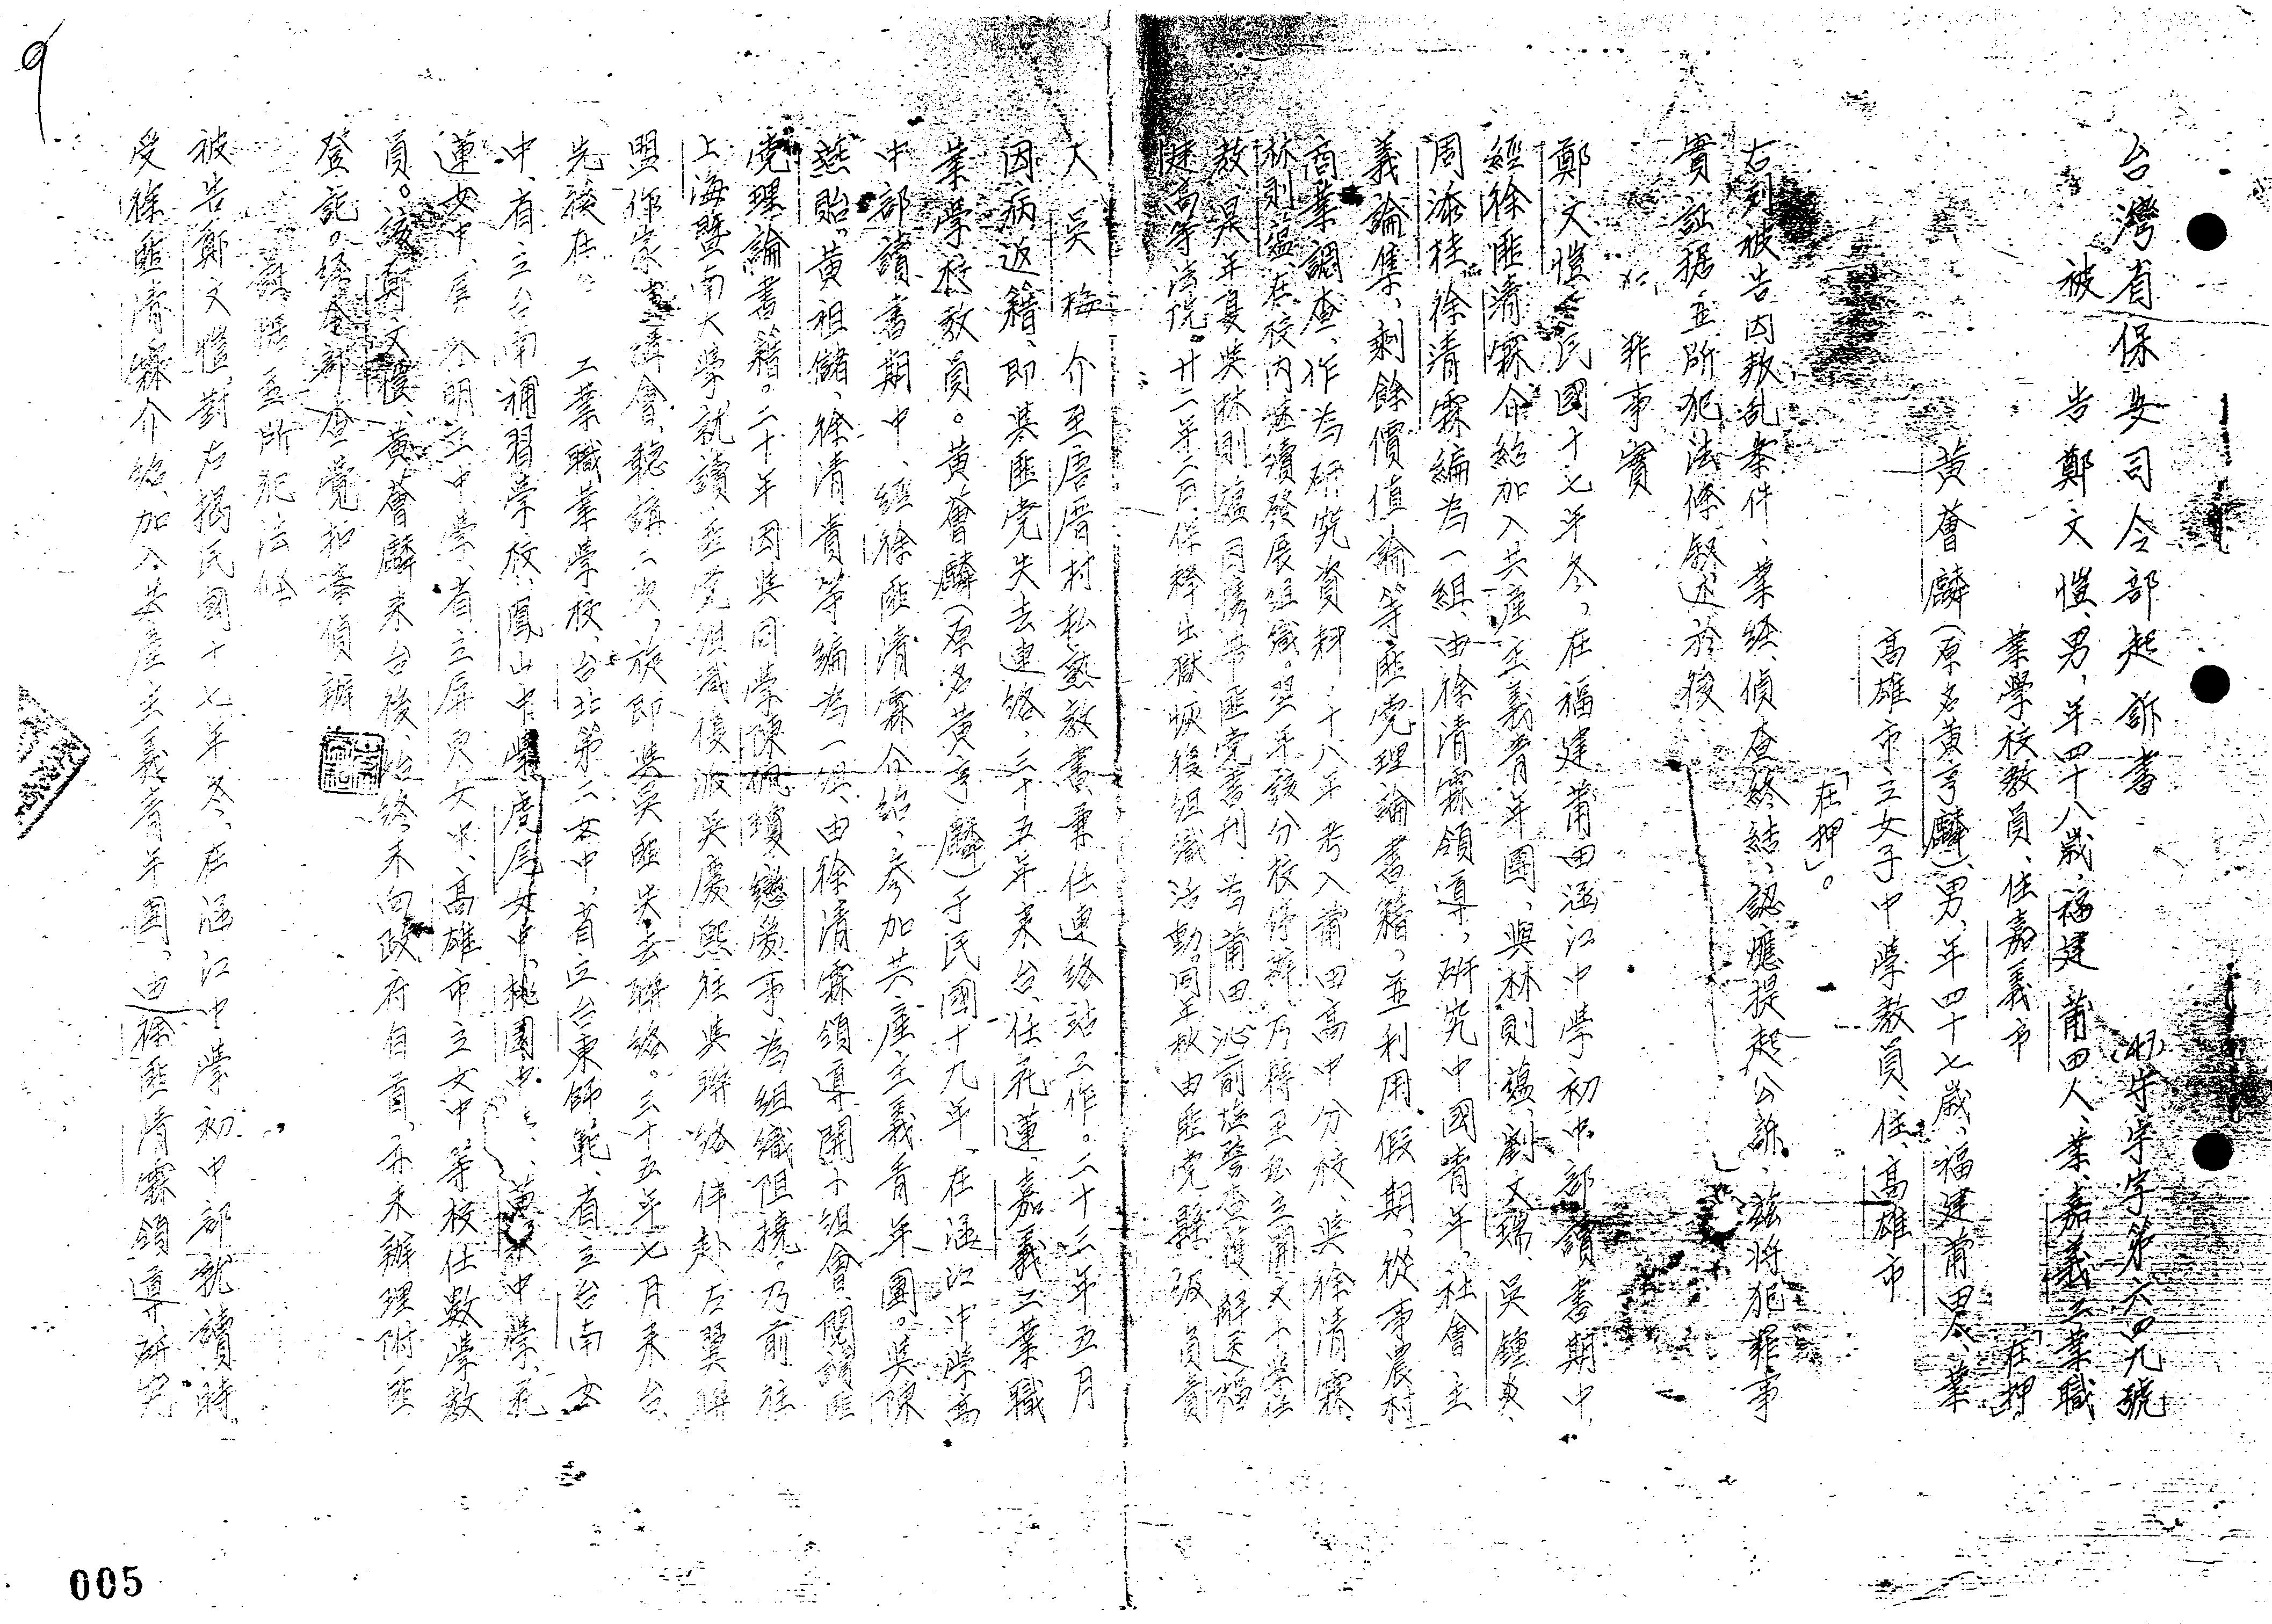 台灣省保安司令部起訴書
字第六四九號
被 告 鄭文愷、男、年四十八歲、福建莆田人、業嘉義工業職
業學校教員、住嘉義市 「在押」。
黃薈麟(原名黃亨麟)男、年四十七歲、福建莆田人、業
高雄市立女子中學教員、住高雄市
「在押」。
右列被告因叛乱条件、業經偵查終結、認應提起公訴、茲將犯罪事
實証据並所犯法條敘述於後、
犯罪事實
鄭文愷民國十七年冬、在福建莆田涵江中學初中部讀書期中、
經徐匪清霖介紹加入共產主義青年團、與林則蘊、劉文瑞、吳鍾爽、
周添桂、徐清霖編為一組、由徐清霖領導、研究中國青年、社會主
義論集、剩餘價值論等匪党理論書籍、並利用假期、從事農村
商業調查、作為研究資料、十八年考入莆田高中分校、與徐清霖、
林則蘊在校內繼續發展組織。翌年該分校停辦、乃轉至私立開文小學任
教、是年夏與林則蘊同携帶匪党書刊、為莆田沁前 警查獲、解送福
建高等法院。廿二年二月保釋出獄、恢復組織活動、同年秋由匪党縣級負責
人吳梅介至唐厝村私塾教書兼任連絡站工作。二十三年五月
因病返籍、即與匪党失去連絡、三十五年來台、任花蓮、嘉義工業職
業學校教員。黃薈麟(原名黃亨麟)于民國十九年、在涵江中學高
中部讀書期中、經徐匪清霖介紹、參加共產主義青年團。與陳
燕貽、黃祖儲、徐清貴等編為一組、由徐清霖領導開小組會、閱讀匪
党理論書籍。二十年因與同學陳珮瓊戀愛事、為組織阻撓。乃前往
上海暨南大學就讀、匪党組織復派吳慶熙往與聯絡、偕赴左翼聯
盟作家 講會、聽講二次、旋即與吳匪失去聯絡。三十五年七月來台
先後在 工業職業學校、台北第二女中、省立台東師範、省立台南女
中、省立台南補習學校、鳳山中學、虎尾女中、桃園中 中學、花
蓮女中、屏 公明正中學、省立屏東女中、高雄市立女中等校任數學教
員。該鄭文愷、黃薈麟來台後、始終未向政府自首、亦未辦理附匪
登記。經本部查覺扣案偵辦
証據並所犯法條
被告鄭文愷對右揭民國十七年冬、在涵江中學初中部就讀時。
受徐匪清霖介紹、加入共產主義青年團、由徐匪清霖領導、研究
005